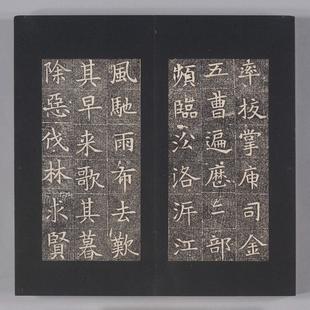 率校掌庫司金
五曹遍歷三部
頻臨㳂洛泝江
風馳雨布去歎
其早来歌其暮
除惡伐林求賢